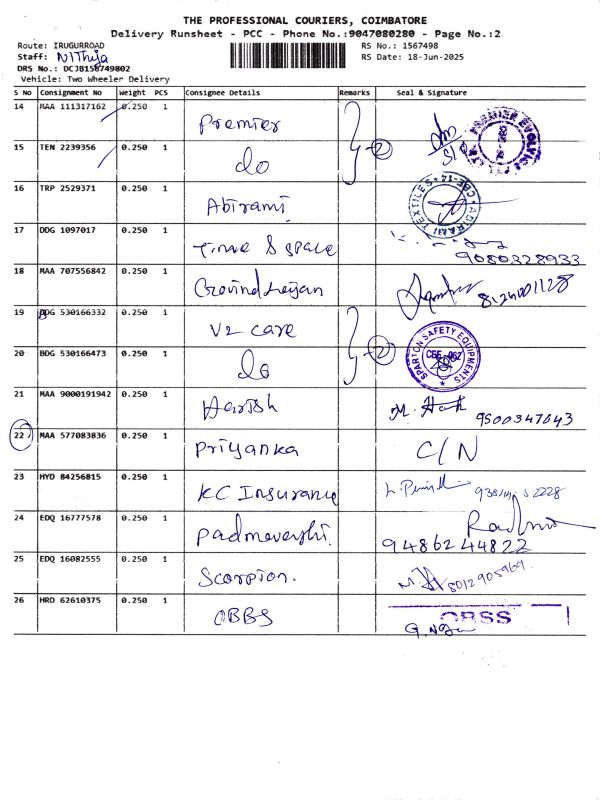 THE PROFESSIONAL COURIERS, COIMBATORE
Delivery Runsheet - PCC - Phone No.:9047080280 - Page No.:2
Route: IRUGURROAD
RS No.: 1567498
Staff: Nithya
RS Date: 18-Jun-2025
DRS No.: DCJB156749802
Vehicle: Two Wheeler Delivery
S No Consignment No Weight PCS Consignee Details Remarks Seal & Signature
14 MAA 111317162 0.250 1 Premier
15 TEN 2239356 0.250 1 do 2
16 TRP 2529371 0.250 1 Abirami ABIRAMI TEXTILES CBE-14
17 DDG 1097017 0.250 1 Time & space 9080328933
18 MAA 707556842 0.250 1 8124001128
19 BDG 530166332 0.250 1 V2 care
20 BDG 530166473 0.250 1 do 2 SPARTON SAFETY EQUIPMENTS
21 MAA 9000191942 0.250 1 Harish 9500347043
22 MAA 577083836 0.250 1 Priyanka C/N
23 HYD 84256815 0.250 1 KC Insurance
24 EDQ 16777578 0.250 1 9486244822
25 EDQ 16082555 0.250 1 Scorpion. 8012905969.
26 HRD 62610375 0.250 1 OBBS